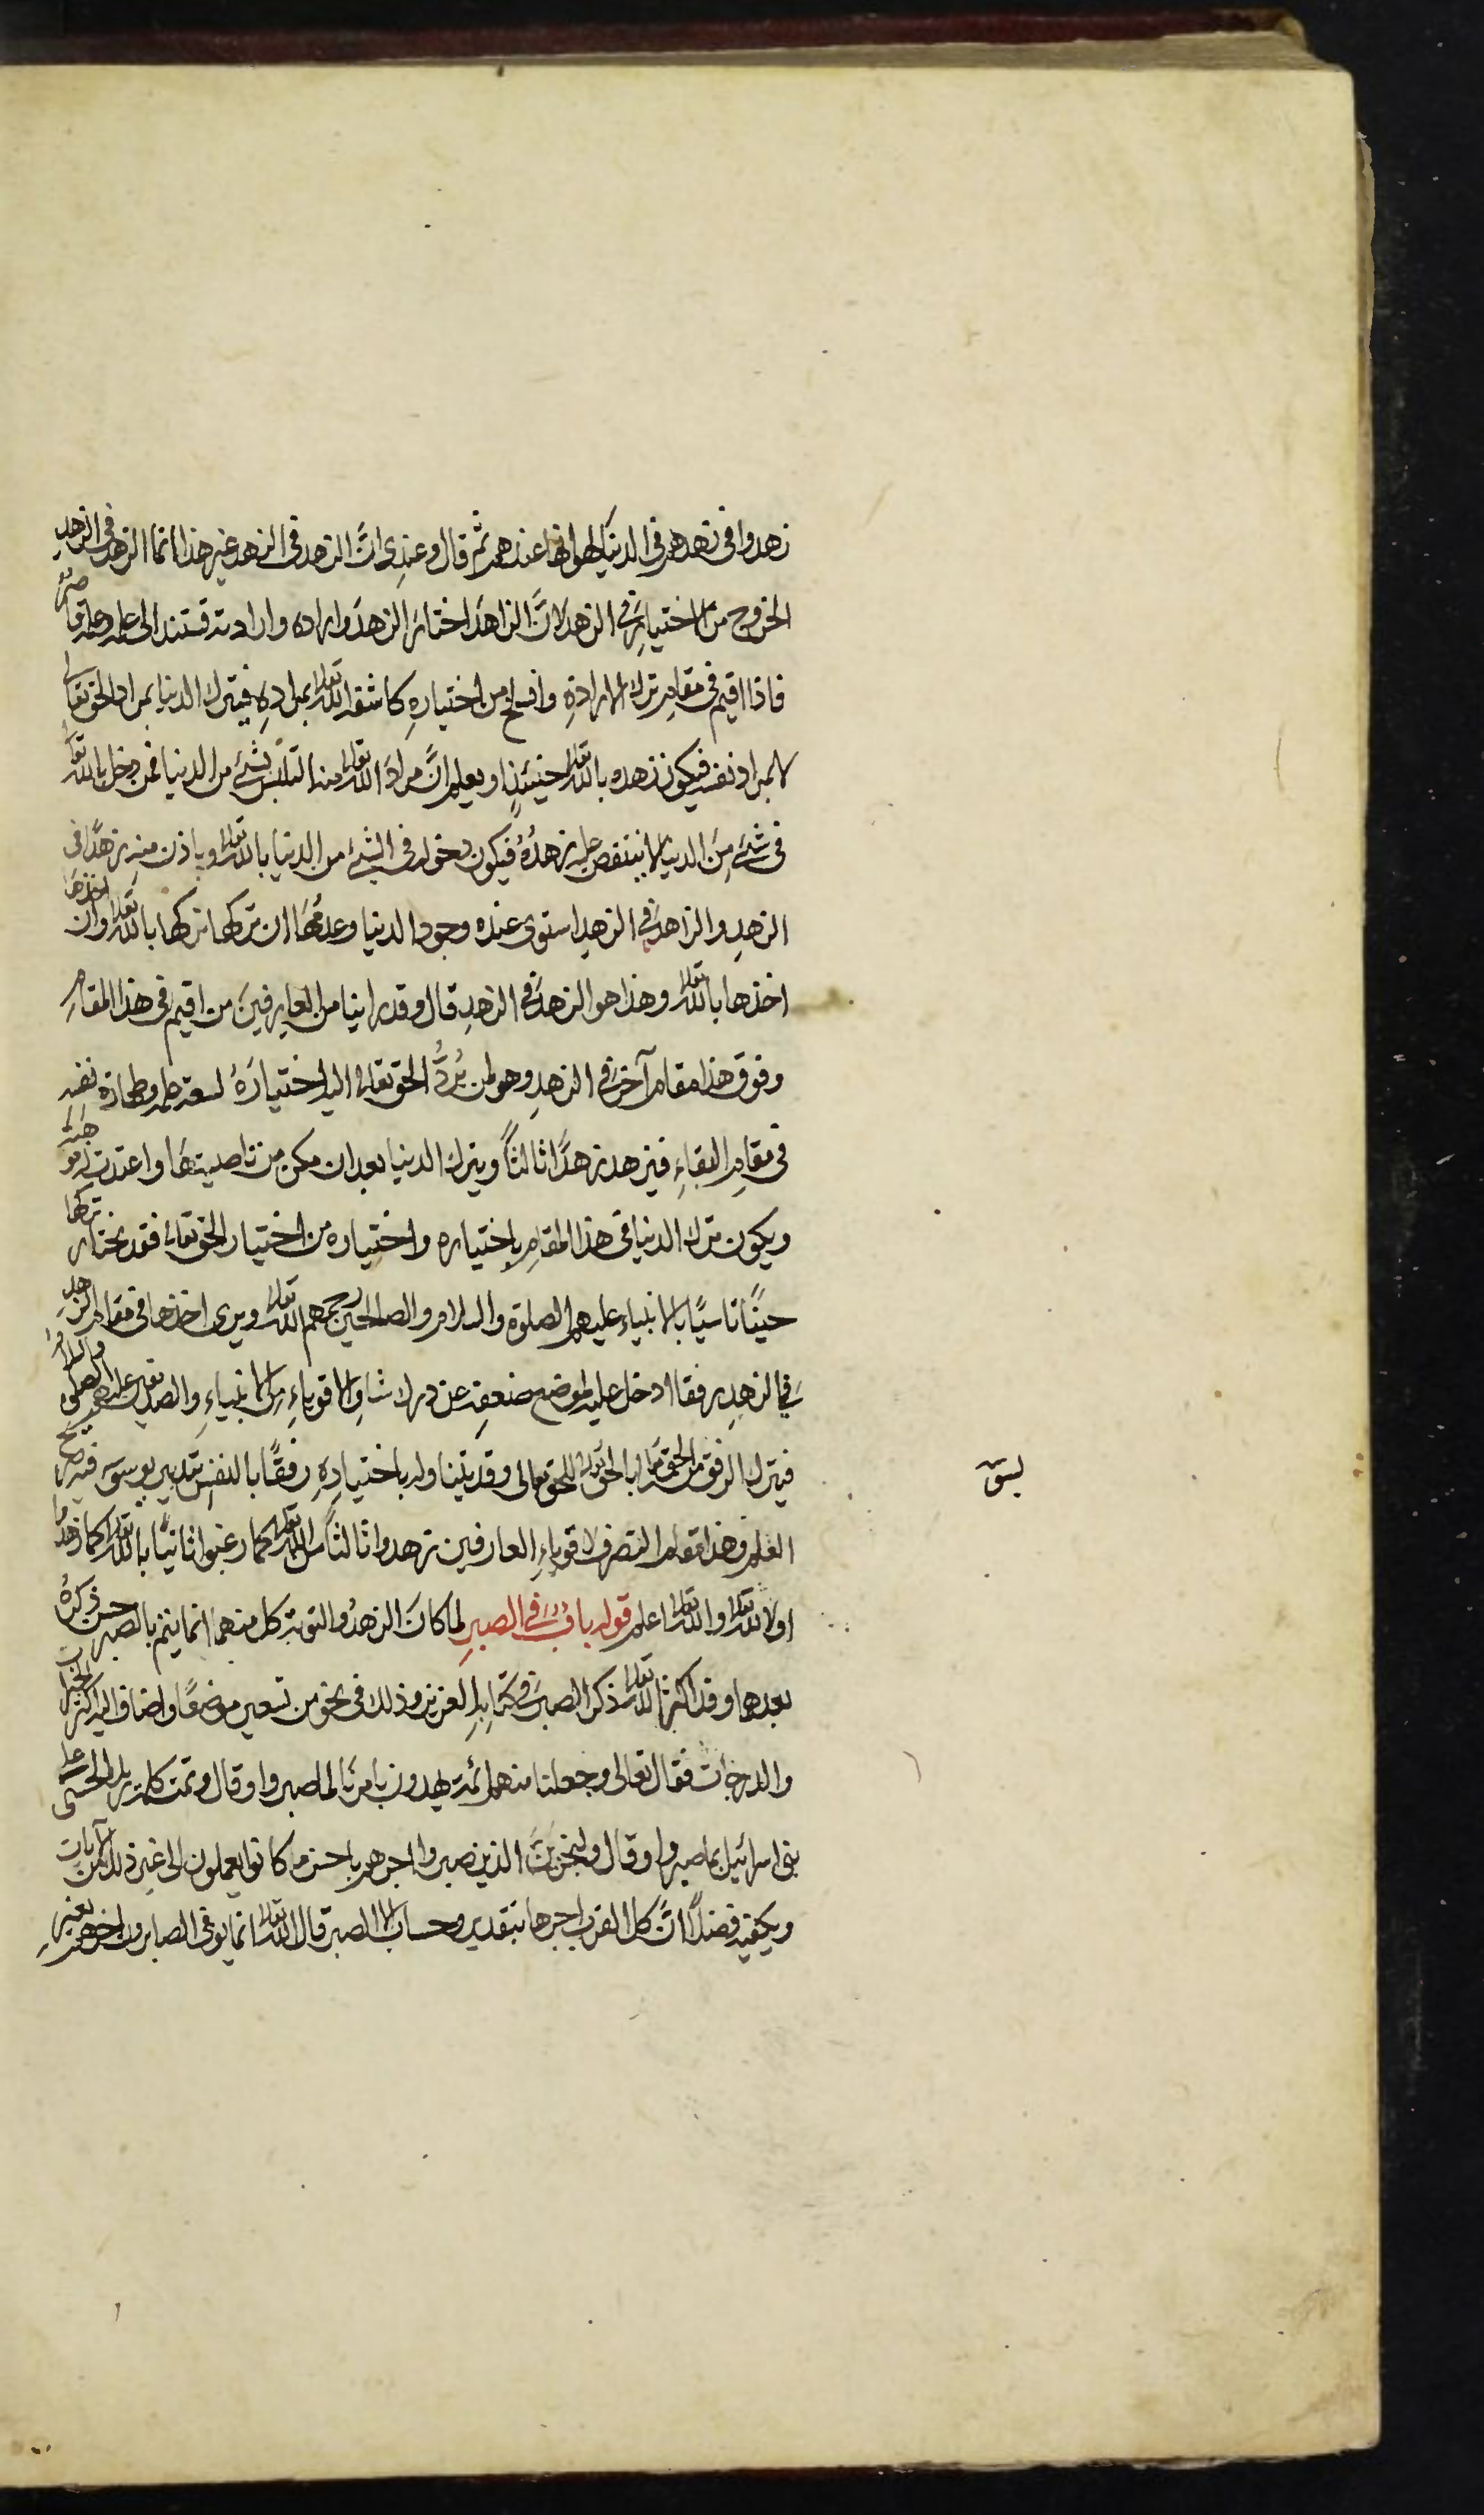 زهدوا في زهدهم في الدنيا لهوانها عندهم ثم قال وعندي ان الزهد في الزهد غير هذا انما الزهد في الزهد
الخروج من الاختيار في الزهد لان الزاهد اختار الزهد واراده وارادته تستند الى علمه وعلمه قاصر
فاذا اقيم في مقام ترك الارادة وانسلخ من اختياره كاشفه الله تعالى بمراده فيترك الدنيا بمراد الحق تعالى
لا بمراد نفسه فيكون زهده بالله تعالى حينئذ او يعلم ان مراد الله تعالى منه التلبس بشيء من الدنيا فمن دخل بالله تعالى
في شيء من الدنيا لا ينتقص عليه زهده فيكون دخوله في الشيء من الدنيا بالله تعالى وباذن منه زهدا في
الزهد والزاهد في الزهد استوى عنده وجود الدنيا وعدمها ان تركها تركها بالله تعالى وان اخذها
اخذها بالله تعالى وهذا هو الزهد في الزهد قال وقد راينا من العارفين من اقيم في هذا المقام
وفوق هذا مقام آخر في الزهد وهو لمن يرد الحق تعالى اليه اختياره لسعة علمه وطهارة نفسه
في مقام البقاء فيزهد زهدا ثالثا ويترك الدنيا بعد ان مكن من ناصيتها واعتدت له موهبة
ويكون ترك الدنيا في هذا المقام باختياره واختياره من اختيار الحق تعالى فقد يختار تركها
حينا تاسيا بالانبياء عليهم الصلوة والسلام والصالحين رحمهم الله تعالى ويرى اخذها في مقام الزهد
في الزهد رفقا ادخل عليه لموضع ضعفه عن درك شاو الاقوياء من الانبياء والصديقين عليهم الصلوة والسلام
فيترك الرفق من الحق تعالى بالحق تعالى للحق تعالى وقد يتناوله باختياره رفقا بالنفس بتدبير يسوسه فيه صريح
العلم وهذا مقام التصرف لاقوياء العارفين زهدوا ثالثا بالله تعالى كما رغبوا ثانيا بالله تعالى كما زهدوا
اولا لله تعالى والله تعالى اعلم قوله باب في الصبر لما كان الزهد والتوبة كل منهما انما يتم بالصبر حسن ذكره
بعدها وقد اكثر الله تعالى ذكر الصبر في كتابه العزيز وذلك في نحو من تسعين موضعا واضاف اليه اكثر الخيرات
والدرجات فقال تعالى وجعلنا منهم ائمة يهدون بامرنا لما صبروا وقال وتمت كلمة ربك الحسنى على
بني اسرائيل بما صبروا وقال ولنجزين الذين صبروا اجرهم باحسن ما كانوا يعملون الى غير ذلك من الآيات
ويكفيه فضلا ان كل القرب اجرها بتقدير وحساب الا الصبر قال الله تعالى انما يوفى الصابرون اجرهم بغير
يسق